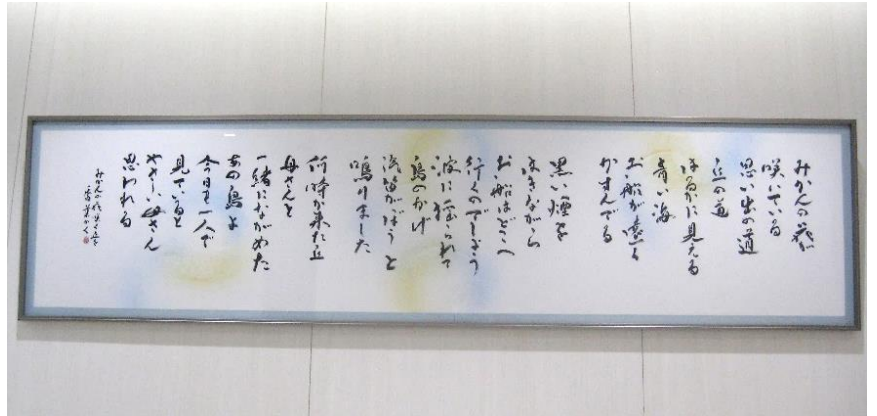 みかんの花が
咲いている
思い出の道
丘の道
はるかに見える
青い海
お船が遠く
かすんでる
黒い煙を
はきながら
お船はどこへ
行くのでしょう
波に揺られて
島のかげ
汽笛がぼうと
鳴りました
何時か来た丘
母さんと
一緒にながめた
あの島よ
今日も一人で
見ていると
やさしい母さん
思われる
みかんの花咲く丘